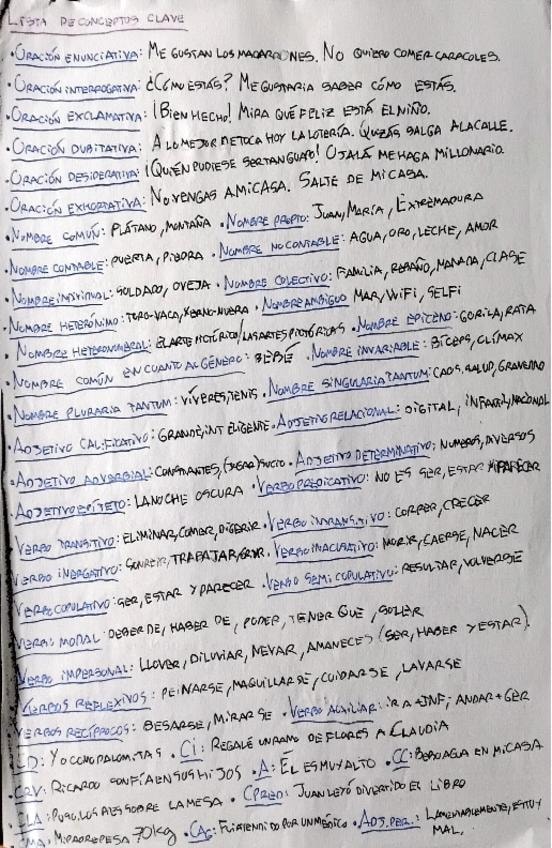 LISTA DE CONCEPTOS CLAVE
• ORACIÓN ENUNCIATIVA: ME GUSTAN LOS MACARRONES. NO QUIERO COMER CARACOLES.
• ORACIÓN INTERROGATIVA: ¿CÓMO ESTÁS? ME GUSTARIA SABER CÓMO ESTÁS.
• ORACIÓN EXCLAMATIVA: ¡BIEN HECHO! MIRA QUÉ FELIZ ESTÁ EL NIÑO.
• ORACIÓN DUBITATIVA: A LO MEJOR ME TOCA HOY LA LOTERÍA. QUIZÁS SALGA A LA CALLE.
• ORACIÓN DESIDERATIVA: ¡QUIÉN PUDIESE SER TAN GUAPO! OJALÁ ME HAGA MILLONARIO.
• ORACIÓN EXHORTATIVA: NO VENGAS A MI CASA. SALTE DE MI CASA.
• NOMBRE COMÚN: PLÁTANO, MONTAÑA • NOMBRE PROPIO: JUAN, MARÍA, EXTREMADURA
• NOMBRE CONTABLE: PUERTA, PIEDRA • NOMBRE NO CONTABLE: AGUA, ORO, LECHE, AMOR
• NOMBRE INDIVIDUAL: SOLDADO, OVEJA • NOMBRE COLECTIVO: FAMILIA, REBAÑO, MANADA, CLASE
• NOMBRE HETERÓNIMO: TORO-VACA, YERNO-NUERA • NOMBRE AMBIGUO MAR, WIFI, SELFI
• NOMBRE HETERONUMERAL: EL ARTE PICTÓRICO/LAS ARTES PICTÓRICAS • NOMBRE EPICENO: GORILA, RATA
• NOMBRE COMÚN EN CUANTO AL GÉNERO: BEBÉ • NOMBRE INVARIABLE: BÍCEPS, CLÍMAX
• NOMBRE PLURARIA TANTUM: VÍVERES, TENIS • NOMBRE SINGULARIA TANTUM: CAOS, SALUD, GRAVEDAD
• ADJETIVO CALIFICATIVO: GRANDE, INTELIGENTE • ADJETIVO RELACIONAL: DIGITAL, INFANTIL, NACIONAL
• ADJETIVO ADVERBIAL: CONSTANTES, (JUGAR) SUCIO • ADJETIVO DETERMINATIVO: NUMEROS, DIVERSOS
• ADJETIVO EPÍTETO: LA NOCHE OSCURA • VERBO PREDICATIVO: NO ES SER, ESTAR NI PARECER
VERBO TRANSITIVO: ELIMINAR, COMER, DIGERIR • VERBO INTRANSITIVO: CORRER, CRECER
VERBO INERGATIVO: SONREIR, TRABAJAR • VERBO INACUSATIVO: MORIR, CAERSE, NACER
VERBO COPULATIVO: SER, ESTAR Y PARECER • VERBO SEMICOPULATIVO: RESULTAR, VOLVERSE
VERBO MODAL: DEBER DE, HABER DE, PODER, TENER QUE, SOLER
VERBO IMPERSONAL: LLOVER, DILUVIAR, NEVAR, AMANECER (SER, HABER Y ESTAR).
VERBOS REFLEXIVOS: PEINARSE, MAQUILLARSE, CUIDARSE, LAVARSE
VERBOS RECÍPROCOS: BESARSE, MIRARSE • VERBO AUXILIAR: IR A + INF; ANDAR + GER
CD: YO COMO PALOMITAS • CI: REGALÉ UN RAMO DE FLORES A CLAUDIA
CRV: RICARDO CONFÍA EN SUS HIJOS • A: ÉL ES MUY ALTO • CC: BEBO AGUA EN MI CASA
CLA: PUSO LOS PIES SOBRE LA MESA • CPRED: JUAN LEYÓ DIVERTIDO EL LIBRO
CMA: MI PADRE PESA 70 kg • CAG: FUI ATENDIDO POR UN MÉDICO • ADJ. PER.: LAMENTABLEMENTE, ESTOY
MAL.